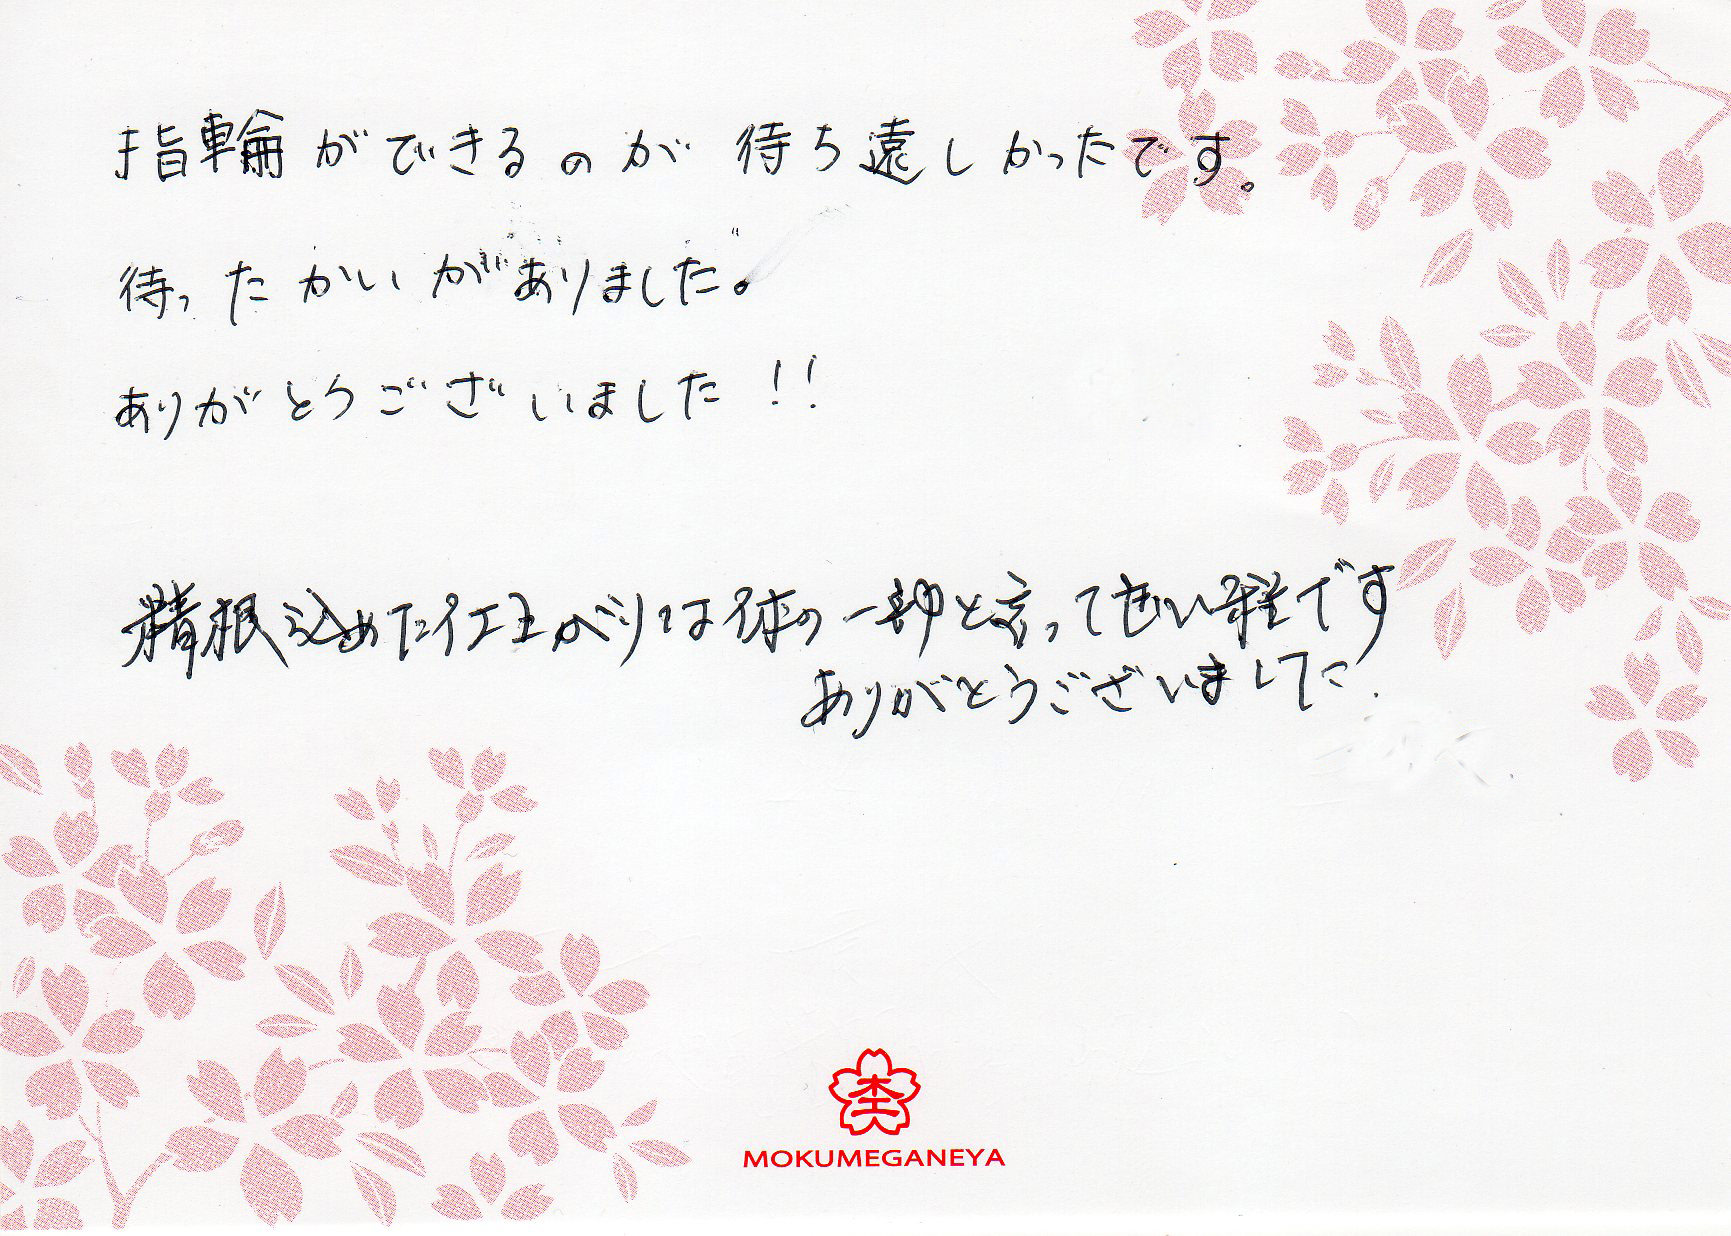 指輪ができるのが 待ち遠しかったです。
待ったかいがありました。
ありがとうございました!!
精根込めた仕上がりは体の一部と言って良い程です
ありがとうございました.
杢
MOKUMEGANEYA